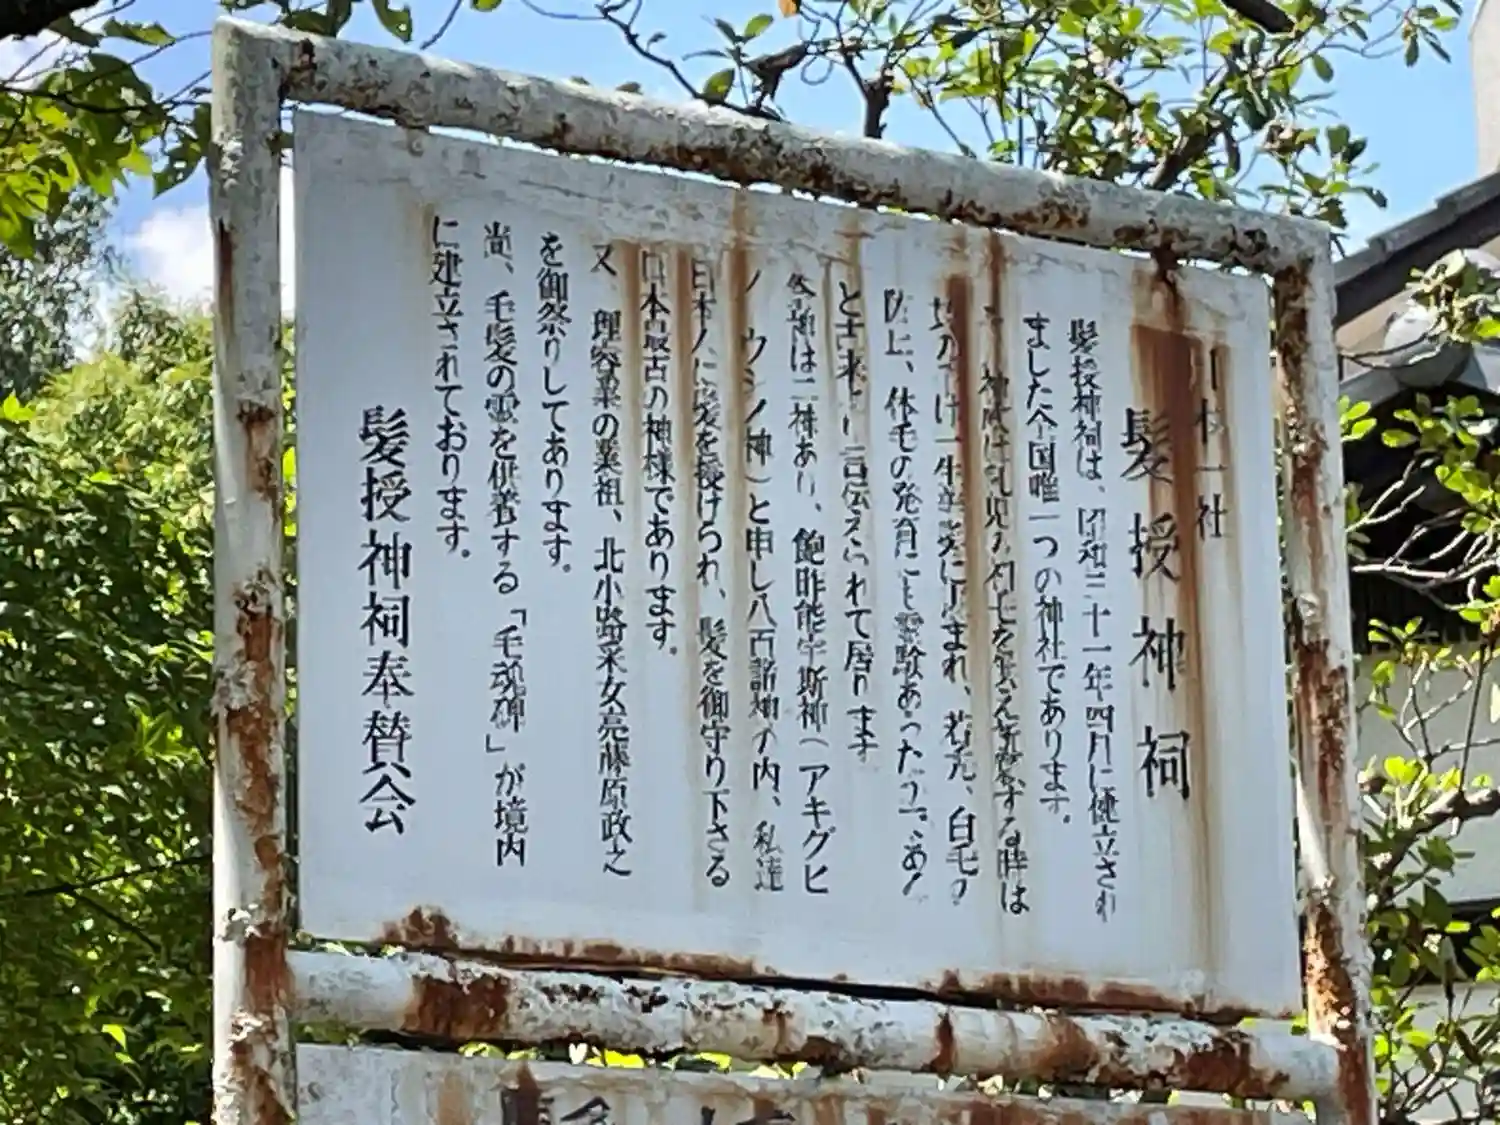 日本一社
髪授神祠
髪授神祠は、昭和三十一年四月に建立され
ました全国唯一つの神社であります。
神殿は乳児の初毛を供え祈願する時は
一生美髪に恵まれ、若禿、白毛の
防止、体毛の発育にも霊験あった
と古来より言伝えられて居ります
祭神は二神あり、飽昨能宇斯神(アキグヒ
ノウシノ神)と申し八百諸神の内、私達
日本人に髪を授けられ、髪を御守り下さる
日本最古の神様であります。
又、理容業の業祖、北小路采女亮藤原政之
を御祭りしてあります。
尚、毛髪の霊を供養する「毛魂碑」が境内
に建立されております。
髪授神祠奉賛会